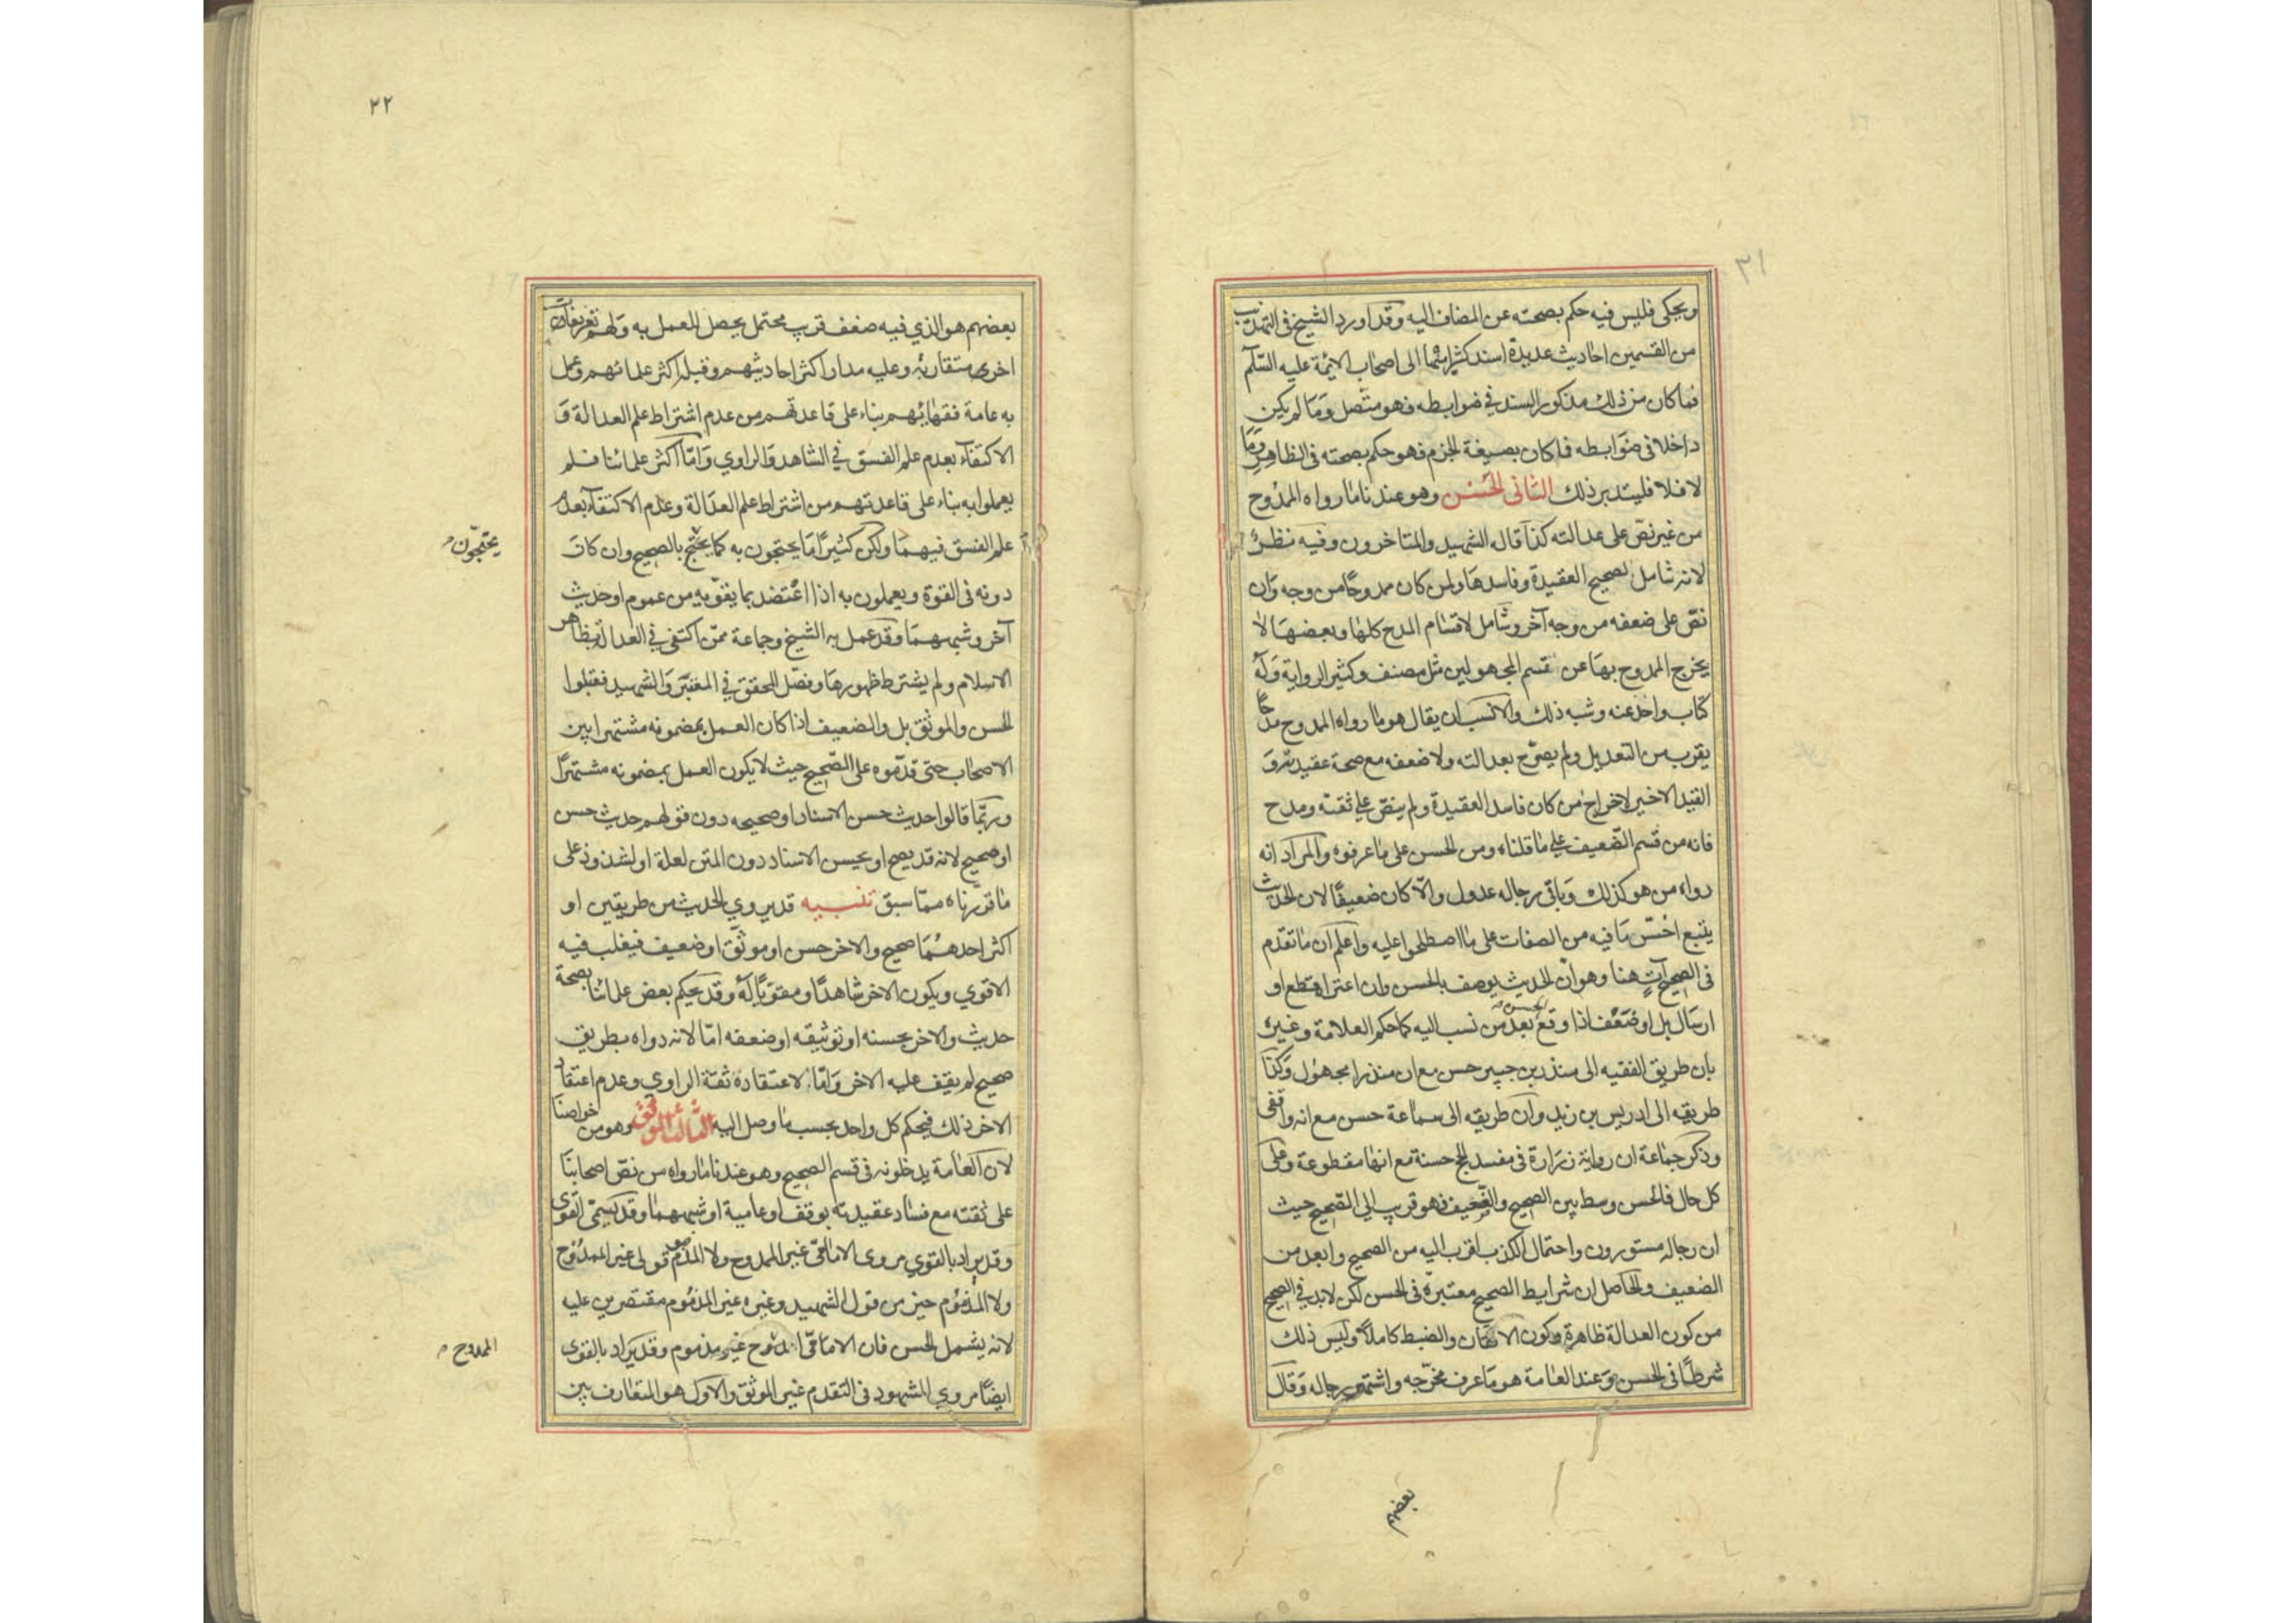 ٢١
ويحكى فليس فيه حكم بصحته عن المضاف اليه وقد اورد الشيخ فى التهذيب
من القسمين احاديث عديدة اسند كثيرا منها الى اصحاب الائمة عليه السلم
فما كان من ذلك مذكور السند في ضوابطه فهو متصل وما لم يكن
داخلا فى ضوابطه فما كان بصيغة الجزم فهو حكم بصحته فى الظاهر وما
لا فلا فليتدبر ذلك الثانى الحسن وهو عندنا ما رواه الممدوح
من غير نص على عدالته كذا قال الشهيد والمتاخرون وفيه نظر
لانه شامل لصحيح العقيدة وفاسدها ولمن كان ممدوحا من وجه وان
نص على ضعفه من وجه آخر وشامل لاقسام المدح كلها وبعضها لا
يخرج الممدوح بها عن قسم المجهولين مثل مصنف وكثير الرواية وله
كتاب واخذ عنه وشبه ذلك والانسب ان يقال هو ما رواه الممدوح مدحا
يقرب من التعديل ولم يصرح بعدالته ولا ضعفه مع صحة عقيدته و
القيد الاخير لاخراج من كان فاسد العقيدة ولم ينص على ثقته ومدح
فانه من قسم الضعيف على ما قلناه ومن الحسن على ما عرفوه والمراد انه
رواه من هو كذلك وباقى رجاله عدول والا كان ضعيفا لان الحديث
يتبع اخس ما فيه من الصفات على ما اصطلحوا عليه واعلم ان ما تقدم
فى الصحيح آت هنا وهو ان الحديث يوصف بالحسن وان اعتراه قطع او
ارسال بل او ضعف اذا وقع بعد من نسب اليه الحسن كما حكم العلامة وغيره
بان طريق الفقيه الى منذر بن جبير حسن مع ان منذرا مجهول وكذا
طريقه الى ادريس بن زيد وان طريقه الى سماعة حسن مع انه واقفى
وذكر جماعة ان رواية زرارة فى مفسد الحج حسنة مع انها مقطوعة وعلى
كل حال فالحسن وسط بين الصحيح والضعيف فهو قريب الى الصحيح حيث
ان رجاله مستورون واحتمال الكذب اقرب اليه من الصحيح وابعد من
الضعيف والحاصل ان شرايط الصحيح معتبرة فى الحسن لكن لابد في الصحيح
من كون العدالة ظاهرة وكون الاتقان والضبط كاملا وليس ذلك
شرطا فى الحسن وعند العامة هو ما عرف مخرجه واشتهر رجاله وقال
بعضهم
٢٢
بعضهم هو الذي فيه ضعف قريب محتمل يحصل للعمل به ولهم تعريفات
اخرى متقاربة وعليه مدار اكثر احاديثهم وقبله اكثر علمائهم وعمل
به عامة فقهائهم بناء على قاعدتهم من عدم اشتراط علم العدالة و
الاكتفاء بعدم علم الفسق في الشاهد والراوي واما اكثر علمائنا فلم
يعملوا به بناء على قاعدتهم من اشتراط علم العدالة وعدم الاكتفاء بعدم
علم الفسق فيهما ولكن كثيرا ما يحتجون به كما يحتج بالصحيح وان كان
يحتجون
دونه فى القوة ويعملون به اذا اعتضد بما يقويه من عموم او حديث
آخر وشبههما وقد عمل به الشيخ وجماعة ممن اكتفى في العدالة بظاهر
الاسلام ولم يشترط ظهورها وفصل المحقق في المعتبر والشهيد فقبلوا
الحسن والموثق بل والضعيف اذا كان العمل بمضمونه مشتهرا بين
الاصحاب حتى قدموه على الصحيح حيث لا يكون العمل بمضمونه مشتهرا
وربما قالوا حديث حسن الاسناد او صحيحه دون قولهم حديث حسن
او صحيح لانه قد يصح او يحسن الاسناد دون المتن لعلة او لشذوذ على
ما قررناه مما سبق تنبيه قد يروي الحديث من طريقين او
اكثر احدهما صحيح والاخر حسن او موثق او ضعيف فيغلب فيه
الاقوي ويكون الاخر شاهدا ومقويا له وقد يحكم بعض علمائنا بصحة
حديث والاخر بحسنه او توثيقه او ضعفه اما لانه رواه بطريق
صحيح لم يقف عليه الاخر واما لاعتقاده ثقة الراوي وعدم اعتقاد
الاخر ذلك فيحكم كل واحد بحسب ما وصل اليه الثالث الموثق وهو من خواصنا
لان العامة يدخلونه فى قسم الصحيح وهو عندنا ما رواه من نص اصحابنا
على ثقته مع فساد عقيدته بوقف او عامية او شبههما وقد يسمى القوى
وقد يراد بالقوي مروى الامامى غير الممدوح ولا المذموم قولى غير الممدوح
ولا المذموم خير من قول الشهيد وغيره غير المذموم مقتصرين عليه
لانه يشمل الحسن فان الامامى الممدوح غير مذموم وقد يراد بالقوى
الممدوح
ايضا مروي المشهود فى التقدم غير الموثق والاول هو المتعارف بين